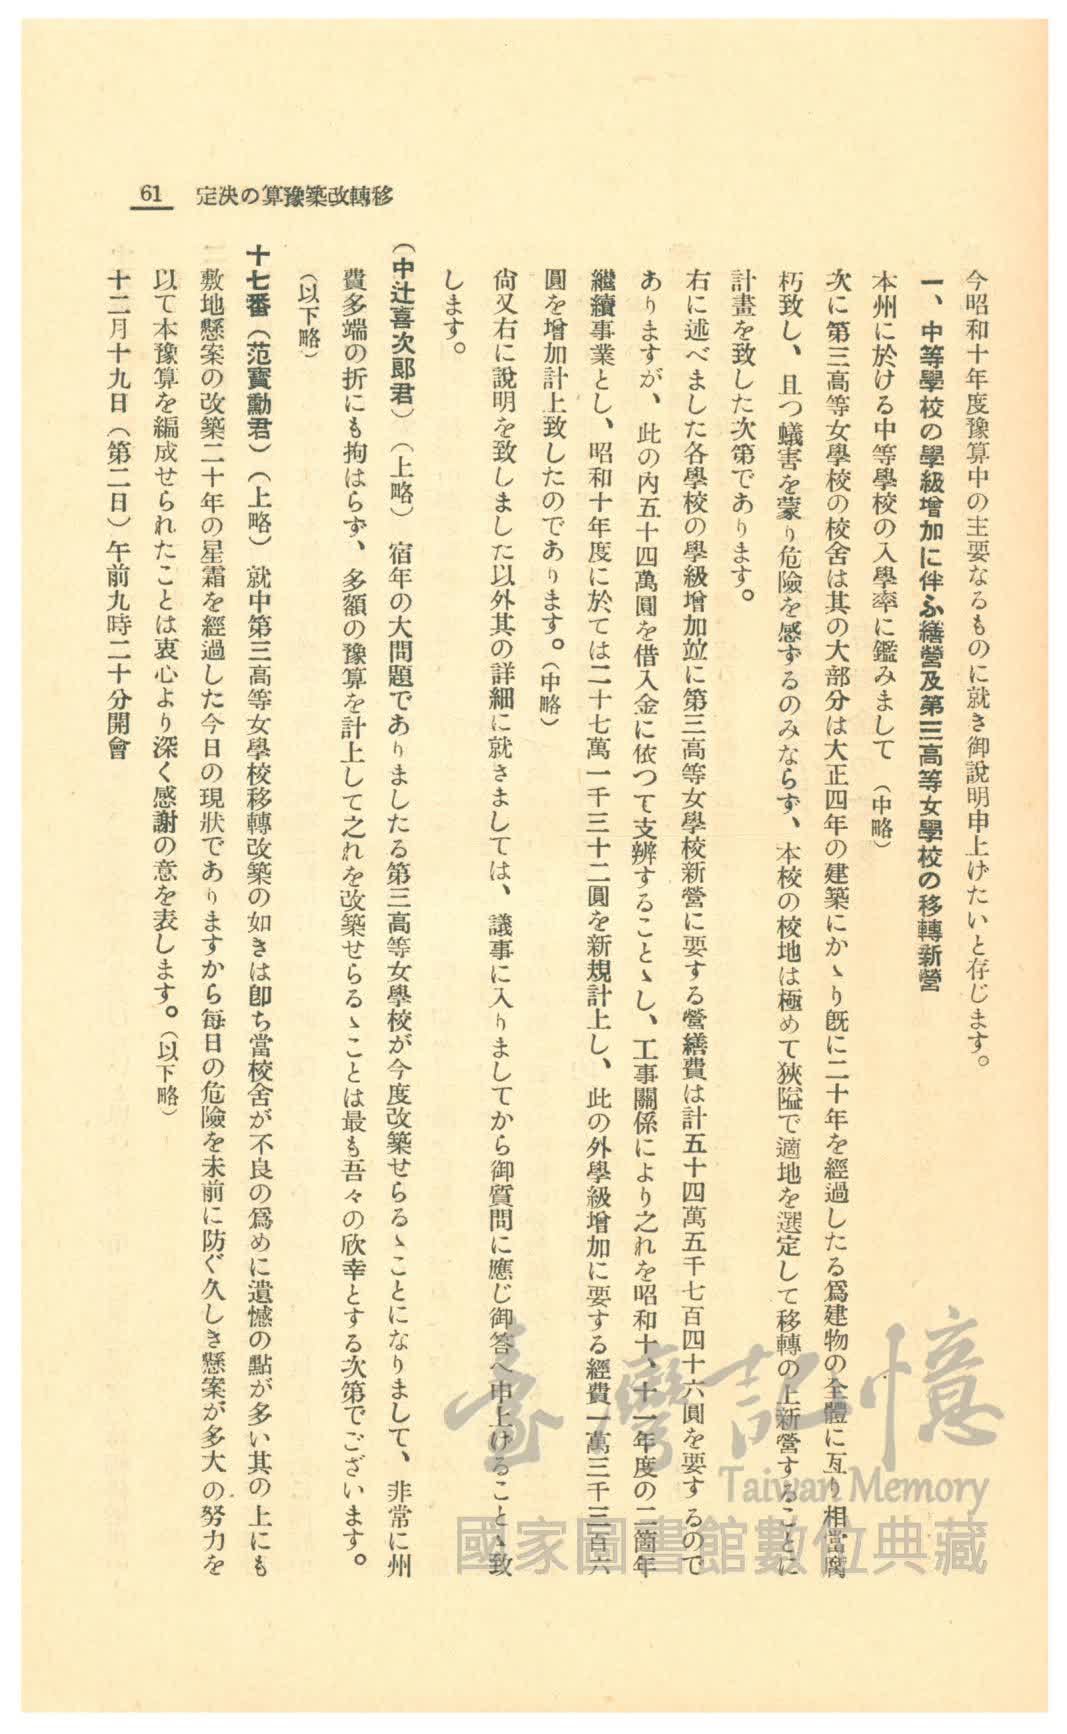 61　定決の算豫築改轉移
今昭和十年度豫算中の主要なるものに就き御說明申上げたいと存じます。
一、中等學校の學級增加に伴ふ繕營及第三高等女學校の移轉新營
本州に於ける中等學校の入學率に鑑みまして（中略）
次に第三高等女學校の校舍は其の大部分は大正四年の建築にかゝり既に二十年を經過したる爲建物の全體に亙り相當腐
朽致し、且つ蟻害を蒙り危險を感ずるのみならず、本校の校地は極めて狹隘で適地を選定して移轉の上新營することに
計畫を致した次第であります。
右に述べました各學校の學級增加竝に第三高等女學校新營に要する營繕費は計五十四萬五千七百四十六圓を要するので
ありますが、此の內五十四萬圓を借入金に依つて支辨することゝし、工事關係により之れを昭和十、十一年度の二箇年
繼續事業とし、昭和十年度に於ては二十七萬一千三十二圓を新規計上し、此の外學級增加に要する經費一萬三千三百六
圓を增加計上致したのであります。（中略）
尙又右に說明を致しました以外其の詳細に就きましては、議事に入りましてから御質問に應じ御答へ申上げることゝ致
します。
（中辻喜次郎君）（上略）宿年の大問題でありましたる第三高等女學校が今度改築せらるゝことになりまして、非常に州
費多端の折にも拘はらず、多額の豫算を計上して之れを改築せらるゝことは最も吾々の欣幸とする次第でございます。
（以下略）
十七番（范寶勳君）（上略）就中第三高等女學校移轉改築の如きは卽ち當校舍が不良の爲めに遺憾の點が多い其の上にも
敷地懸案の改築二十年の星霜を經過した今日の現狀でありますから每日の危險を未前に防ぐ久しき懸案が多大の努力を
以て本豫算を編成せられたことは衷心より深く感謝の意を表します。（以下略）
十二月十九日（第二日）午前九時二十分開會
臺灣記憶
Taiwan Memory
國家圖書館數位典藏